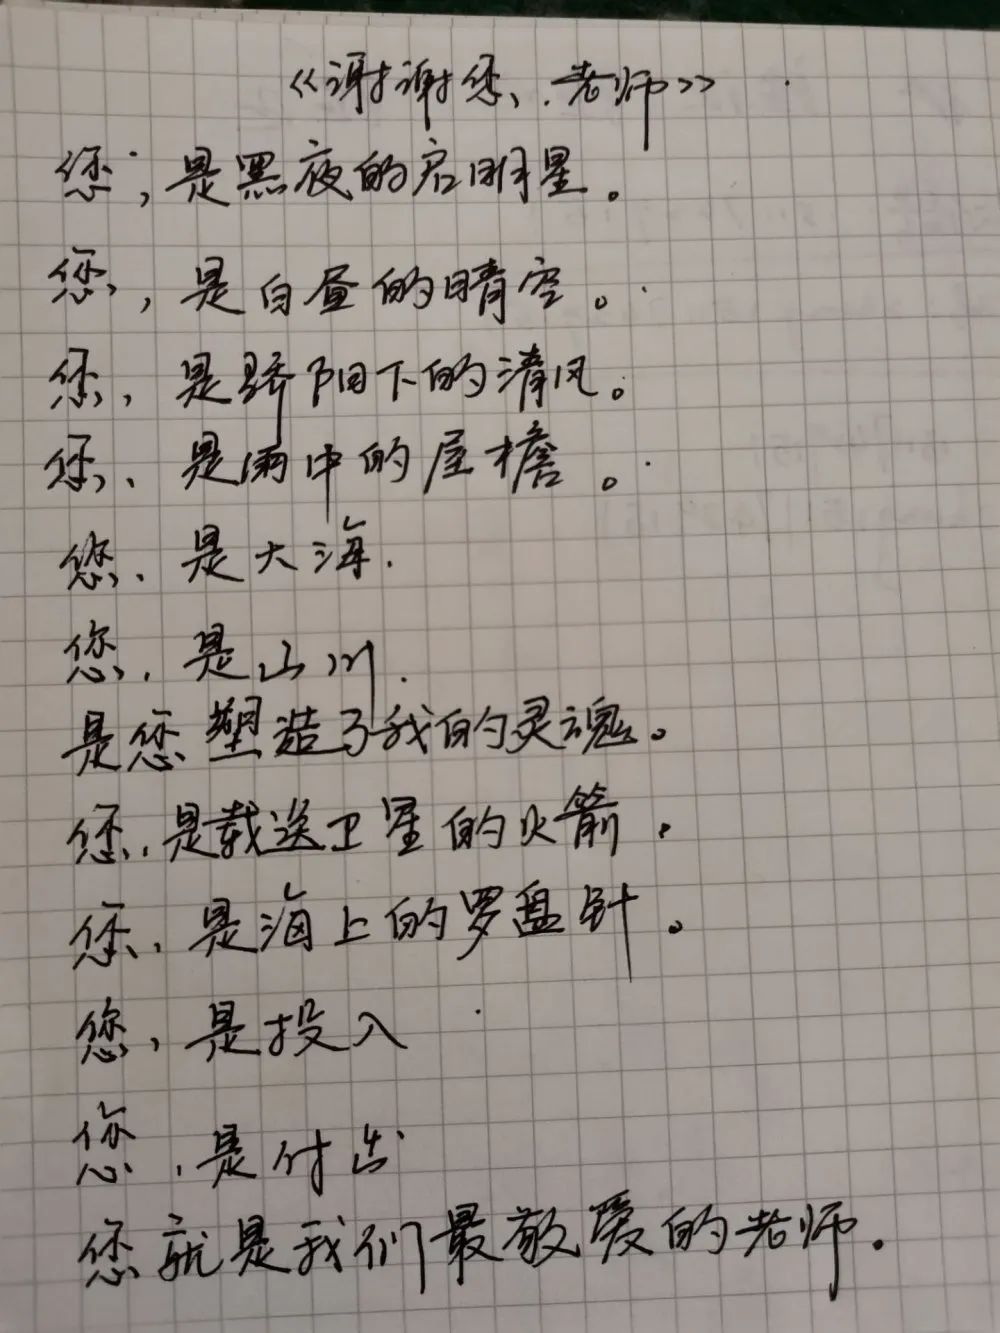 《谢谢您、老师》
您，是黑夜的启明星。
您，是白昼的晴空。
您，是骄阳下的清风。
您、是雨中的屋檐。
您、是大海.
您，是山川.
是您塑造了我的灵魂。
您，是载送卫星的火箭.
您，是海上的罗盘针。
您，是投入
您，是付出
您就是我们最敬爱的老师.